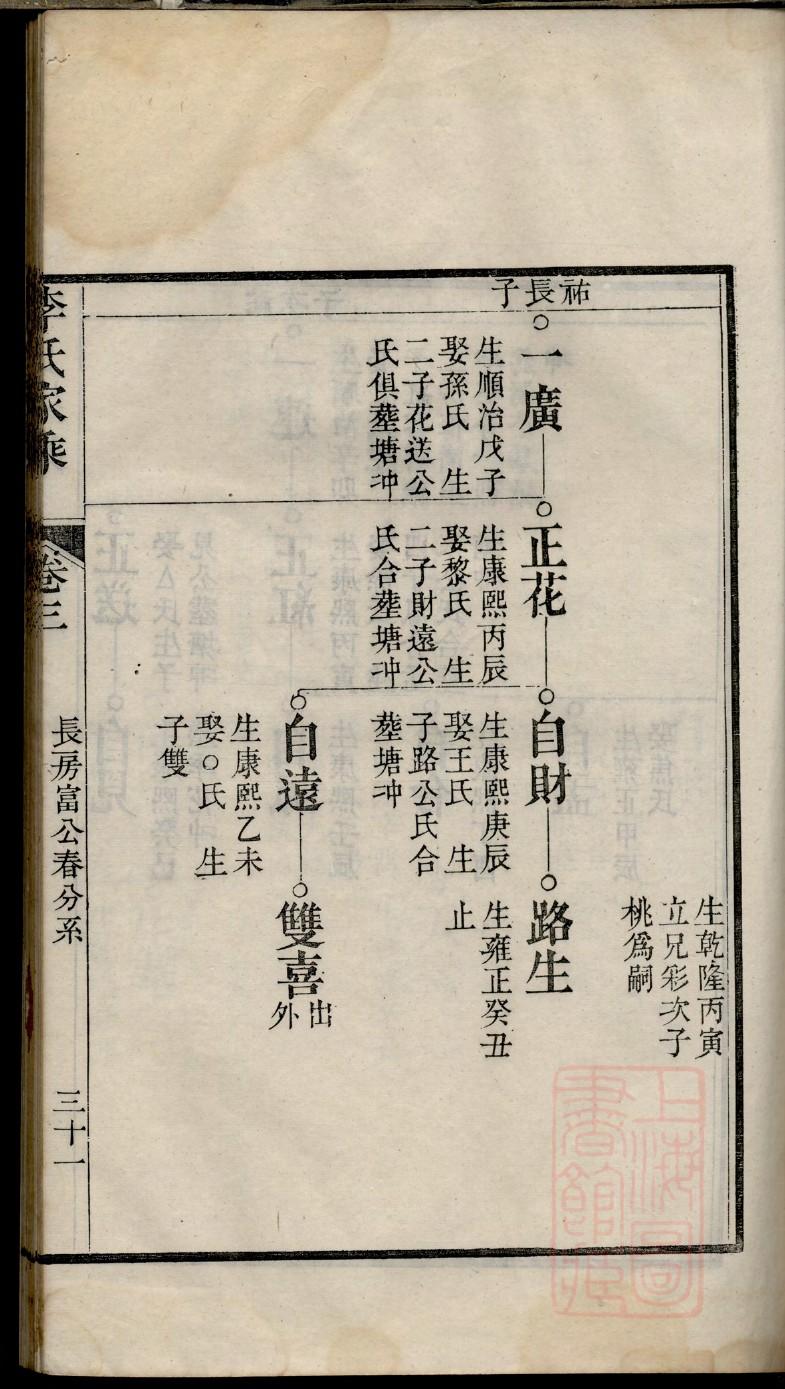 祐長子
生乾隆丙寅
立兄彩次子
桃爲嗣
一廣
生順治戊子
娶孫氏 生
二子花送公
氏俱塟塘冲
正花
生康熙丙辰
娶黎氏 生
二子財遠公
氏合塟塘冲
自財
生康熙庚辰
娶王氏 生
子路公氏合
塟塘冲
路生
生雍正癸丑
止
自遠
生康熙乙未
娶○氏 生
子雙
雙喜
出
外
李氏家乘
卷三
長房富公春分系
三十一
上海圖
書館藏